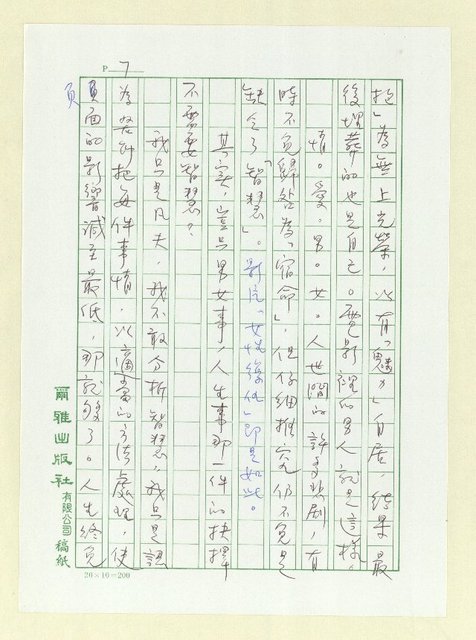 P 7
抱」為無上光榮，以有「魅力」自居，結果最
後埋葬的也是自己。電影裡的男人就是這樣。
情。愛。男。女。人世間的許多悲劇，有
時不免歸咎為「宿命」，但仔細推究仍不免是
缺乏了「智慧」。影片「女性復仇」即是如此。
其實，豈只男女事，人生事那一件的抉擇
不需要智慧？
我只是凡夫，我不敢分析智慧，我只是認
為努力把每件事情，以適當的方法處理，使
負面的影響減至最低，那就夠了。人生終免
負
爾雅出版社有限公司 稿紙
20×10=200